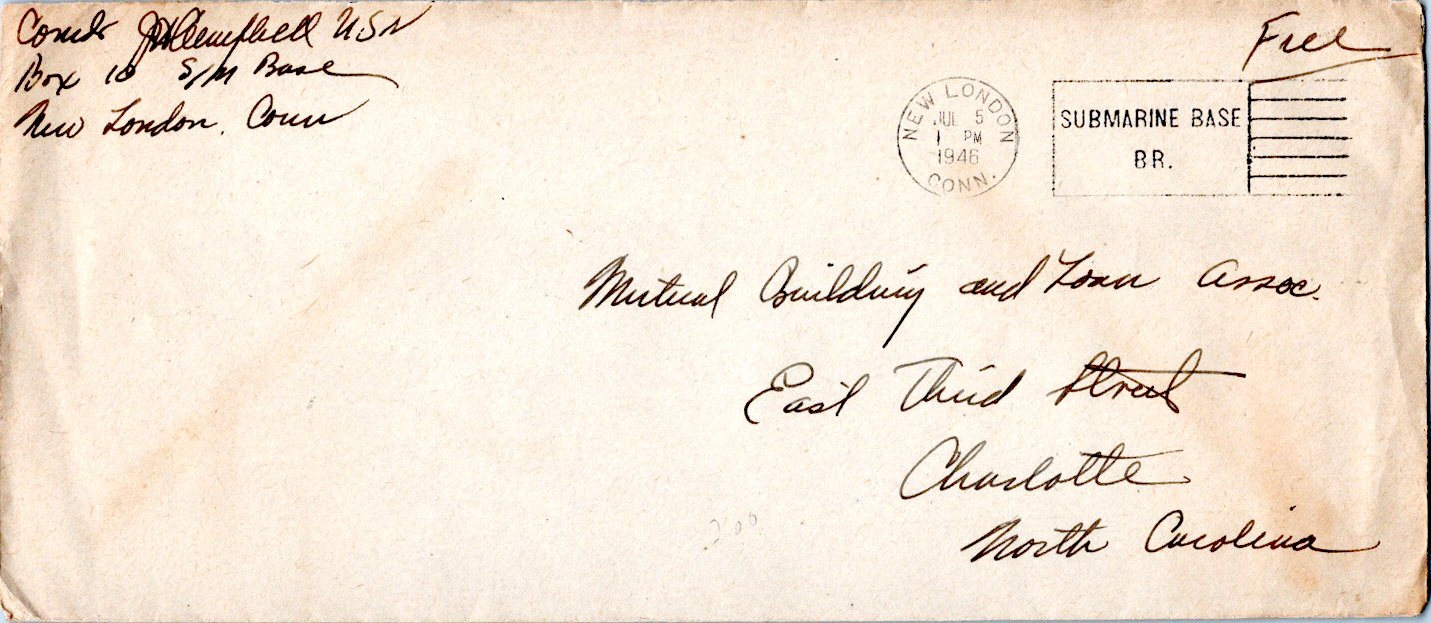 Comdr JW Campbell USN
Box 10 S/M Base
New London, Conn
Free
NEW LONDON
JUL 5
1 PM
1946
CONN.
SUBMARINE BASE
BR.
Mutual Building and Loan Assoc.
East Third Street
Charlotte
North Carolina
200